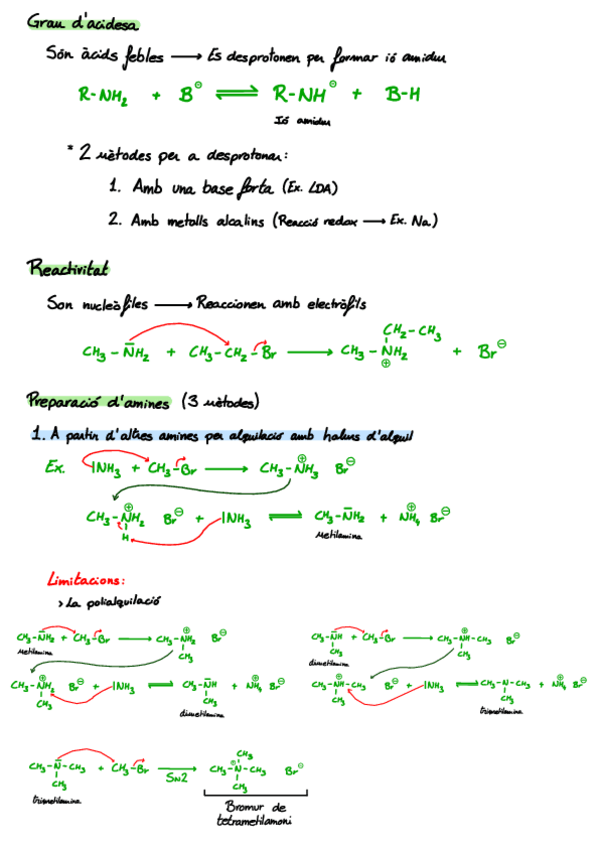 Grau d'acidesa
Són àcids febles → Es desprotonen per formar ió amidur
R-NH₂ + B⊖ ⇌ R-NH⊖ + B-H
Ió amidur
* 2 mètodes per a desprotonar:
1. Amb una base forta (Ex. LDA)
2. Amb metalls alcalins (Reacció redox → Ex. Na)
Reactivitat
Son nucleòfiles → Reaccionen amb electròfils
CH₂-CH₃
CH₃-NH₂ + CH₃-CH₂-Br → CH₃-NH₂ + Br⊖
⊕
Preparació d'amines (3 mètodes)
1. A partir d'altres amines per alquilació amb halurs d'alquil
Ex. INH₃ + CH₃-Br → CH₃-NH₃ Br⊖
⊕
CH₃-NH₂ Br⊖ + INH₃ ⇌ CH₃-NH₂ + NH₄ Br⊖
H
Metilamina
Limitacions:
> La polialquilació
CH₃-NH₂ + CH₃-Br → CH₃-NH₂ Br⊖
Metilamina
CH₃
CH₃-NH₂ Br⊖ + INH₃ ⇌ CH₃-NH + NH₄ Br⊖
CH₃
CH₃
dimetilamina
CH₃-NH + CH₃-Br → CH₃-NH-CH₃ Br⊖
CH₃
CH₃
dimetilamina
CH₃-NH-CH₃ Br⊖ + INH₃ ⇌ CH₃-N-CH₃ + NH₄ Br⊖
CH₃
CH₃
trimetilamina
CH₃
CH₃-N-CH₃ + CH₃-Br → CH₃-N-CH₃ Br⊖
CH₃
SN2
CH₃
trimetilamina
Bromur de
tetrametilamoni